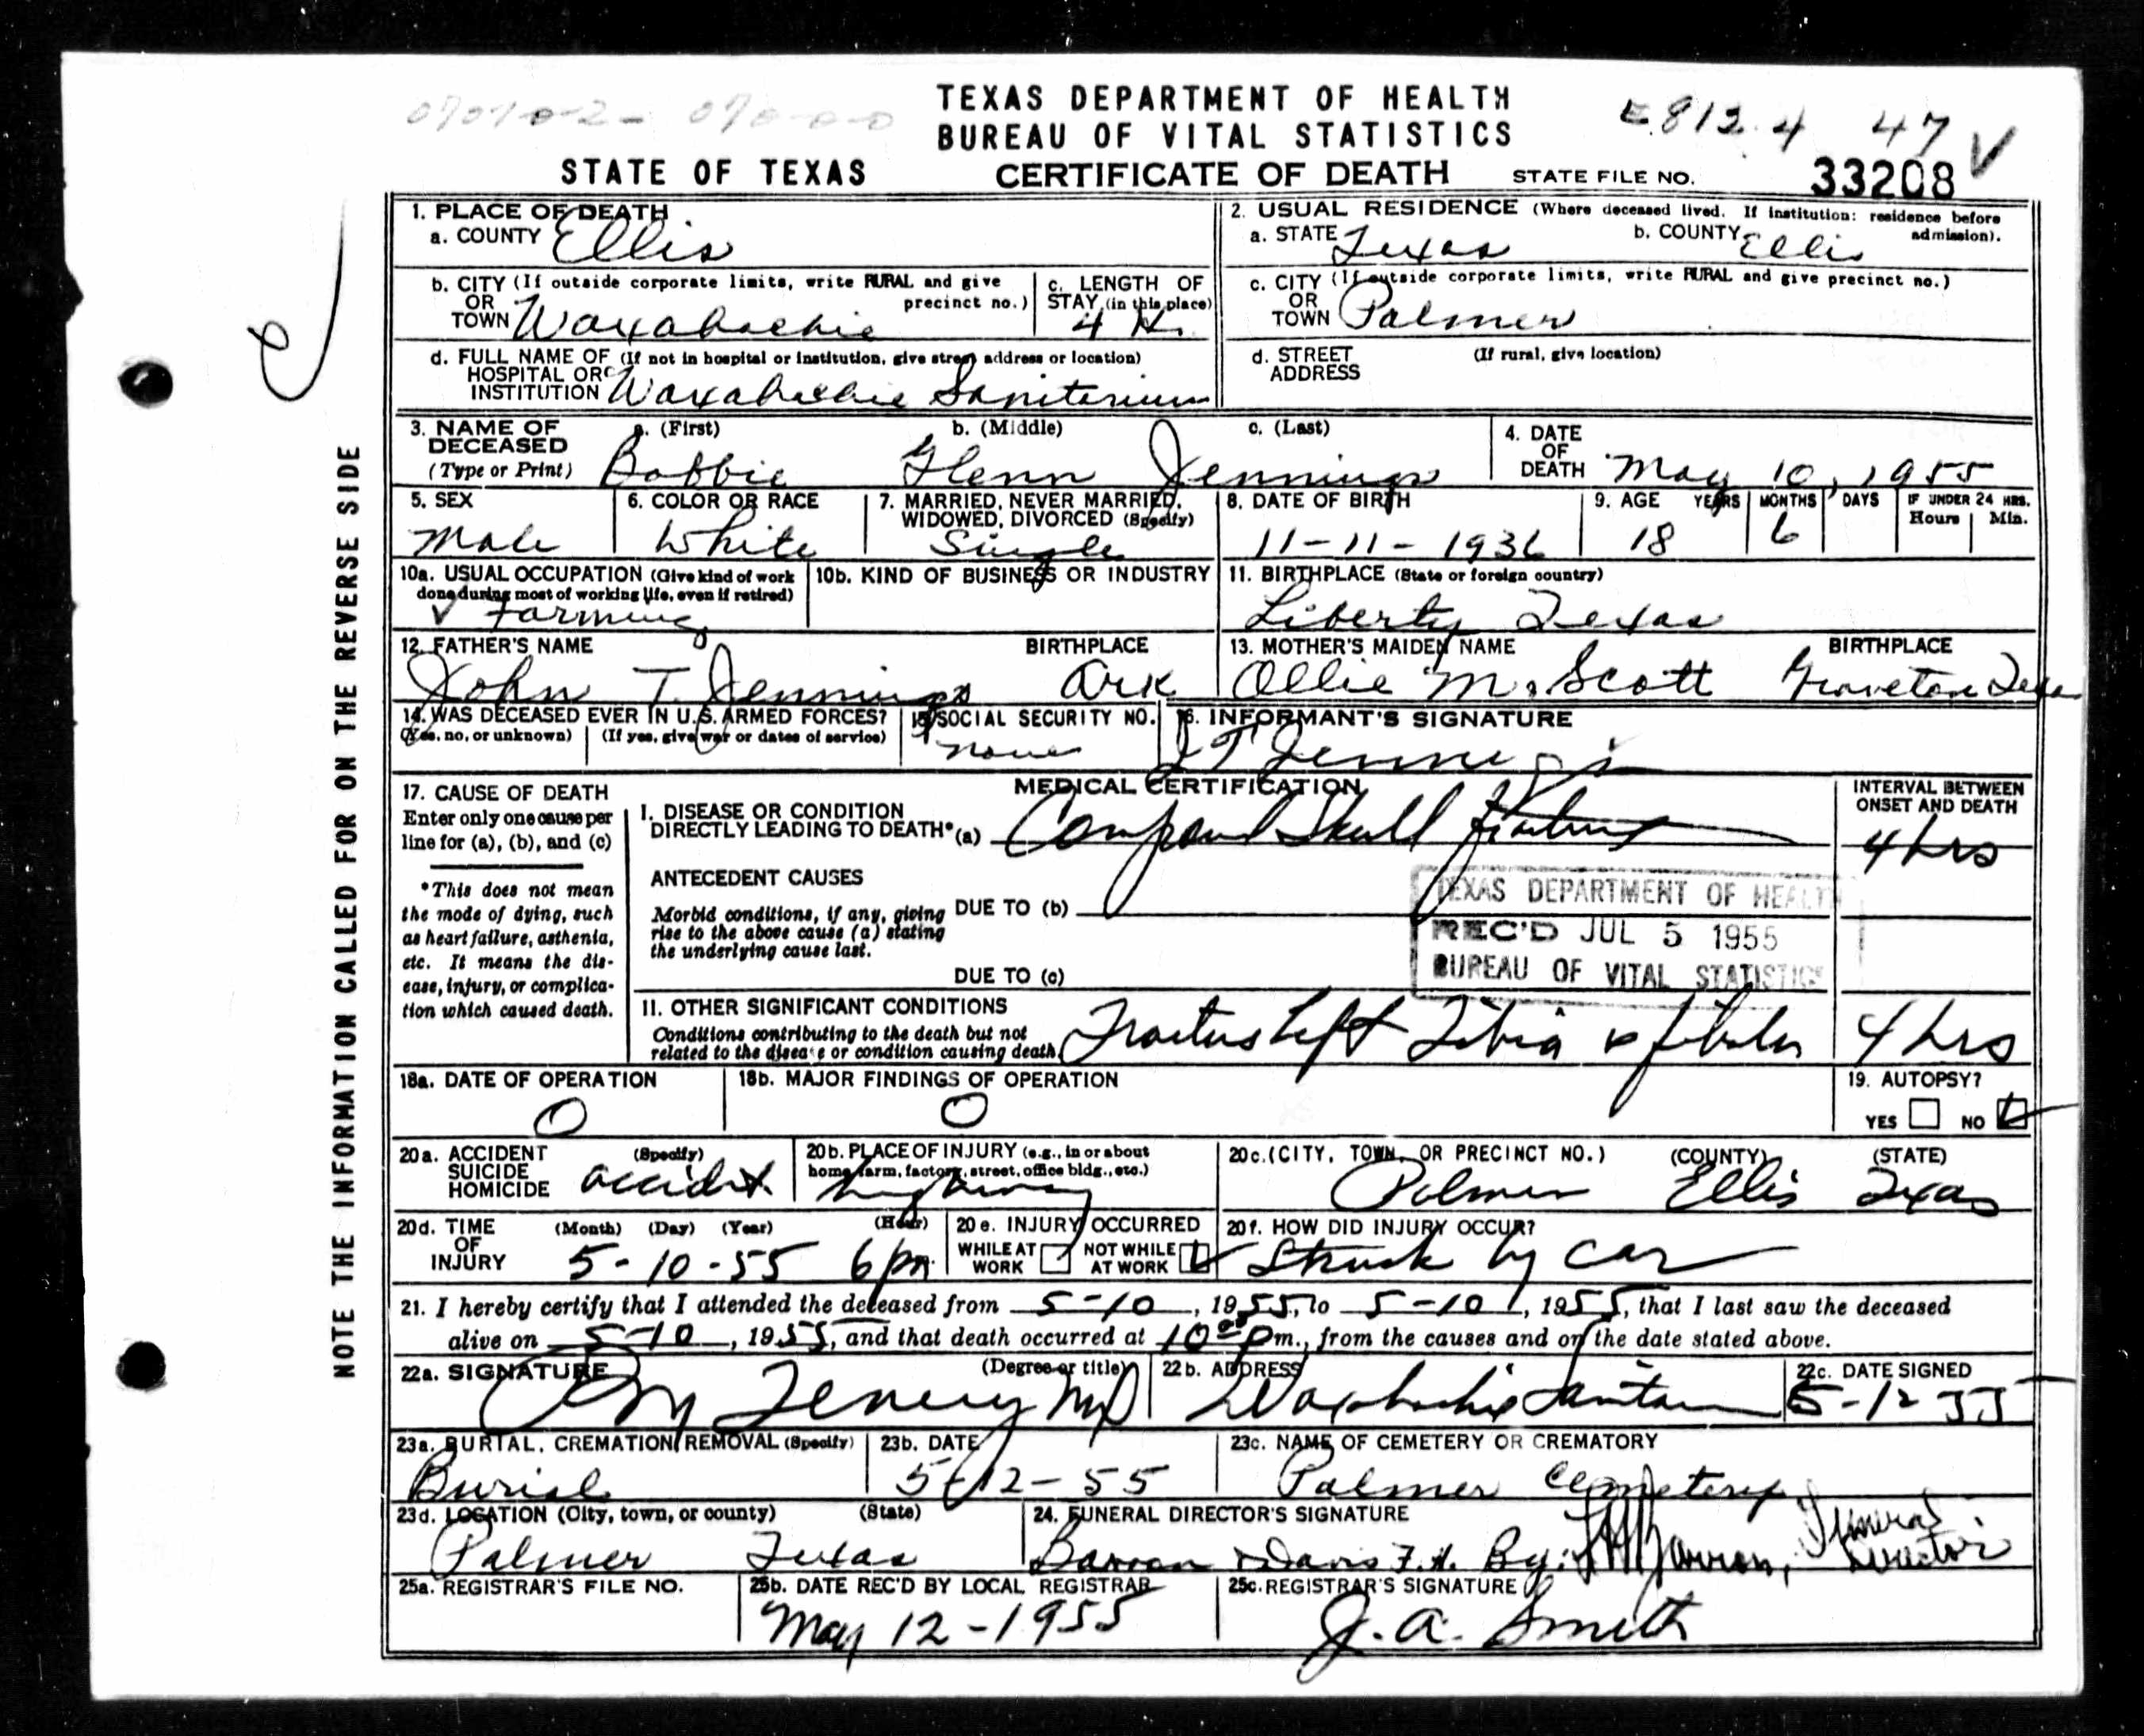 TEXAS DEPARTMENT OF HEALTH
BUREAU OF VITAL STATISTICS
E812.4 47 V
STATE OF TEXAS CERTIFICATE OF DEATH STATE FILE NO. 33208
NOTE THE INFORMATION CALLED FOR ON THE REVERSE SIDE
1. PLACE OF DEATH
a. COUNTY Ellis
2. USUAL RESIDENCE (Where deceased lived. If institution: residence before admission).
a. STATE Texas b. COUNTY Ellis
b. CITY (If outside corporate limits, write RURAL and give precinct no.)
OR TOWN Waxahachie
c. LENGTH OF STAY (in this place) 4 H.
c. CITY (If outside corporate limits, write RURAL and give precinct no.)
OR TOWN Palmer
d. FULL NAME OF (If not in hospital or institution, give street address or location)
HOSPITAL OR INSTITUTION Waxahachie Sanitarium
d. STREET ADDRESS (If rural, give location)
3. NAME OF DECEASED (Type or Print)
a. (First) b. (Middle) c. (Last)
Bobbie Glenn Jennings
4. DATE OF DEATH May 10, 1955
5. SEX Male
6. COLOR OR RACE White
7. MARRIED, NEVER MARRIED, WIDOWED, DIVORCED (Specify) Single
8. DATE OF BIRTH 11-11-1936
9. AGE YEARS 18 MONTHS 6 DAYS IF UNDER 24 HRS. Hours Min.
10a. USUAL OCCUPATION (Give kind of work done during most of working life, even if retired)
V Farming
10b. KIND OF BUSINESS OR INDUSTRY
11. BIRTHPLACE (State or foreign country)
Liberty Texas
12. FATHER'S NAME BIRTHPLACE
John T. Jennings Ark
13. MOTHER'S MAIDEN NAME BIRTHPLACE
Ollie M. Scott Groveton Texas
14. WAS DECEASED EVER IN U.S. ARMED FORCES?
(Yes, no, or unknown) (If yes, give war or dates of service)
15. SOCIAL SECURITY NO. none
16. INFORMANT'S SIGNATURE
J T Jennings
MEDICAL CERTIFICATION
17. CAUSE OF DEATH
Enter only one cause per line for (a), (b), and (c)
*This does not mean the mode of dying, such as heart failure, asthenia, etc. It means the disease, injury, or complication which caused death.
I. DISEASE OR CONDITION DIRECTLY LEADING TO DEATH* (a) Compound Skull fracture
INTERVAL BETWEEN ONSET AND DEATH
4 hrs
ANTECEDENT CAUSES
Morbid conditions, if any, giving rise to the above cause (a) stating the underlying cause last.
DUE TO (b)
DUE TO (c)
TEXAS DEPARTMENT OF HEALTH
REC'D JUL 5 1955
BUREAU OF VITAL STATISTICS
II. OTHER SIGNIFICANT CONDITIONS
Conditions contributing to the death but not related to the disease or condition causing death.
Fracture Left Tibia & fibula 4 hrs
18a. DATE OF OPERATION 0
18b. MAJOR FINDINGS OF OPERATION 0
19. AUTOPSY? YES NO
20a. ACCIDENT SUICIDE HOMICIDE (Specify) accident
20b. PLACE OF INJURY (e.g., in or about home, farm, factory, street, office bldg., etc.) highway
20c. (CITY, TOWN, OR PRECINCT NO.) (COUNTY) (STATE)
Palmer Ellis Texas
20d. TIME OF INJURY (Month) (Day) (Year) (Hour)
5-10-55 6 pm
20e. INJURY OCCURRED
WHILE AT WORK NOT WHILE AT WORK
20f. HOW DID INJURY OCCUR?
Struck by car
21. I hereby certify that I attended the deceased from 5-10, 1955, to 5-10, 1955, that I last saw the deceased
alive on 5-10, 1955, and that death occurred at 10 00 pm., from the causes and on the date stated above.
22a. SIGNATURE (Degree or title)
Tenery MD
22b. ADDRESS Waxahachie Sanitarium
22c. DATE SIGNED 5-12 55
23a. BURIAL, CREMATION, REMOVAL (Specify)
Burial
23b. DATE 5-12-55
23c. NAME OF CEMETERY OR CREMATORY
Palmer Cemetery
23d. LOCATION (City, town, or county) (State)
Palmer Texas
24. FUNERAL DIRECTOR'S SIGNATURE
Davis F.H. By: Funeral Director
25a. REGISTRAR'S FILE NO.
25b. DATE REC'D BY LOCAL REGISTRAR
May 12-1955
25c. REGISTRAR'S SIGNATURE
J. A. Smith